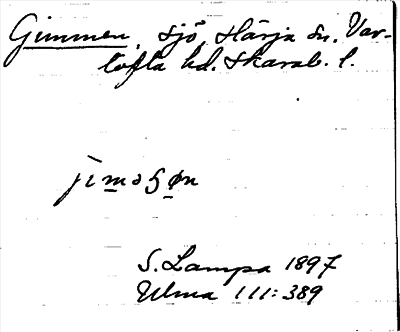 Gimmen, sjö, Härja sn. Var-
tofta hd. Skarab. l.
jìmɔʃøn
S. Lampa 1897
Ulma 111:389